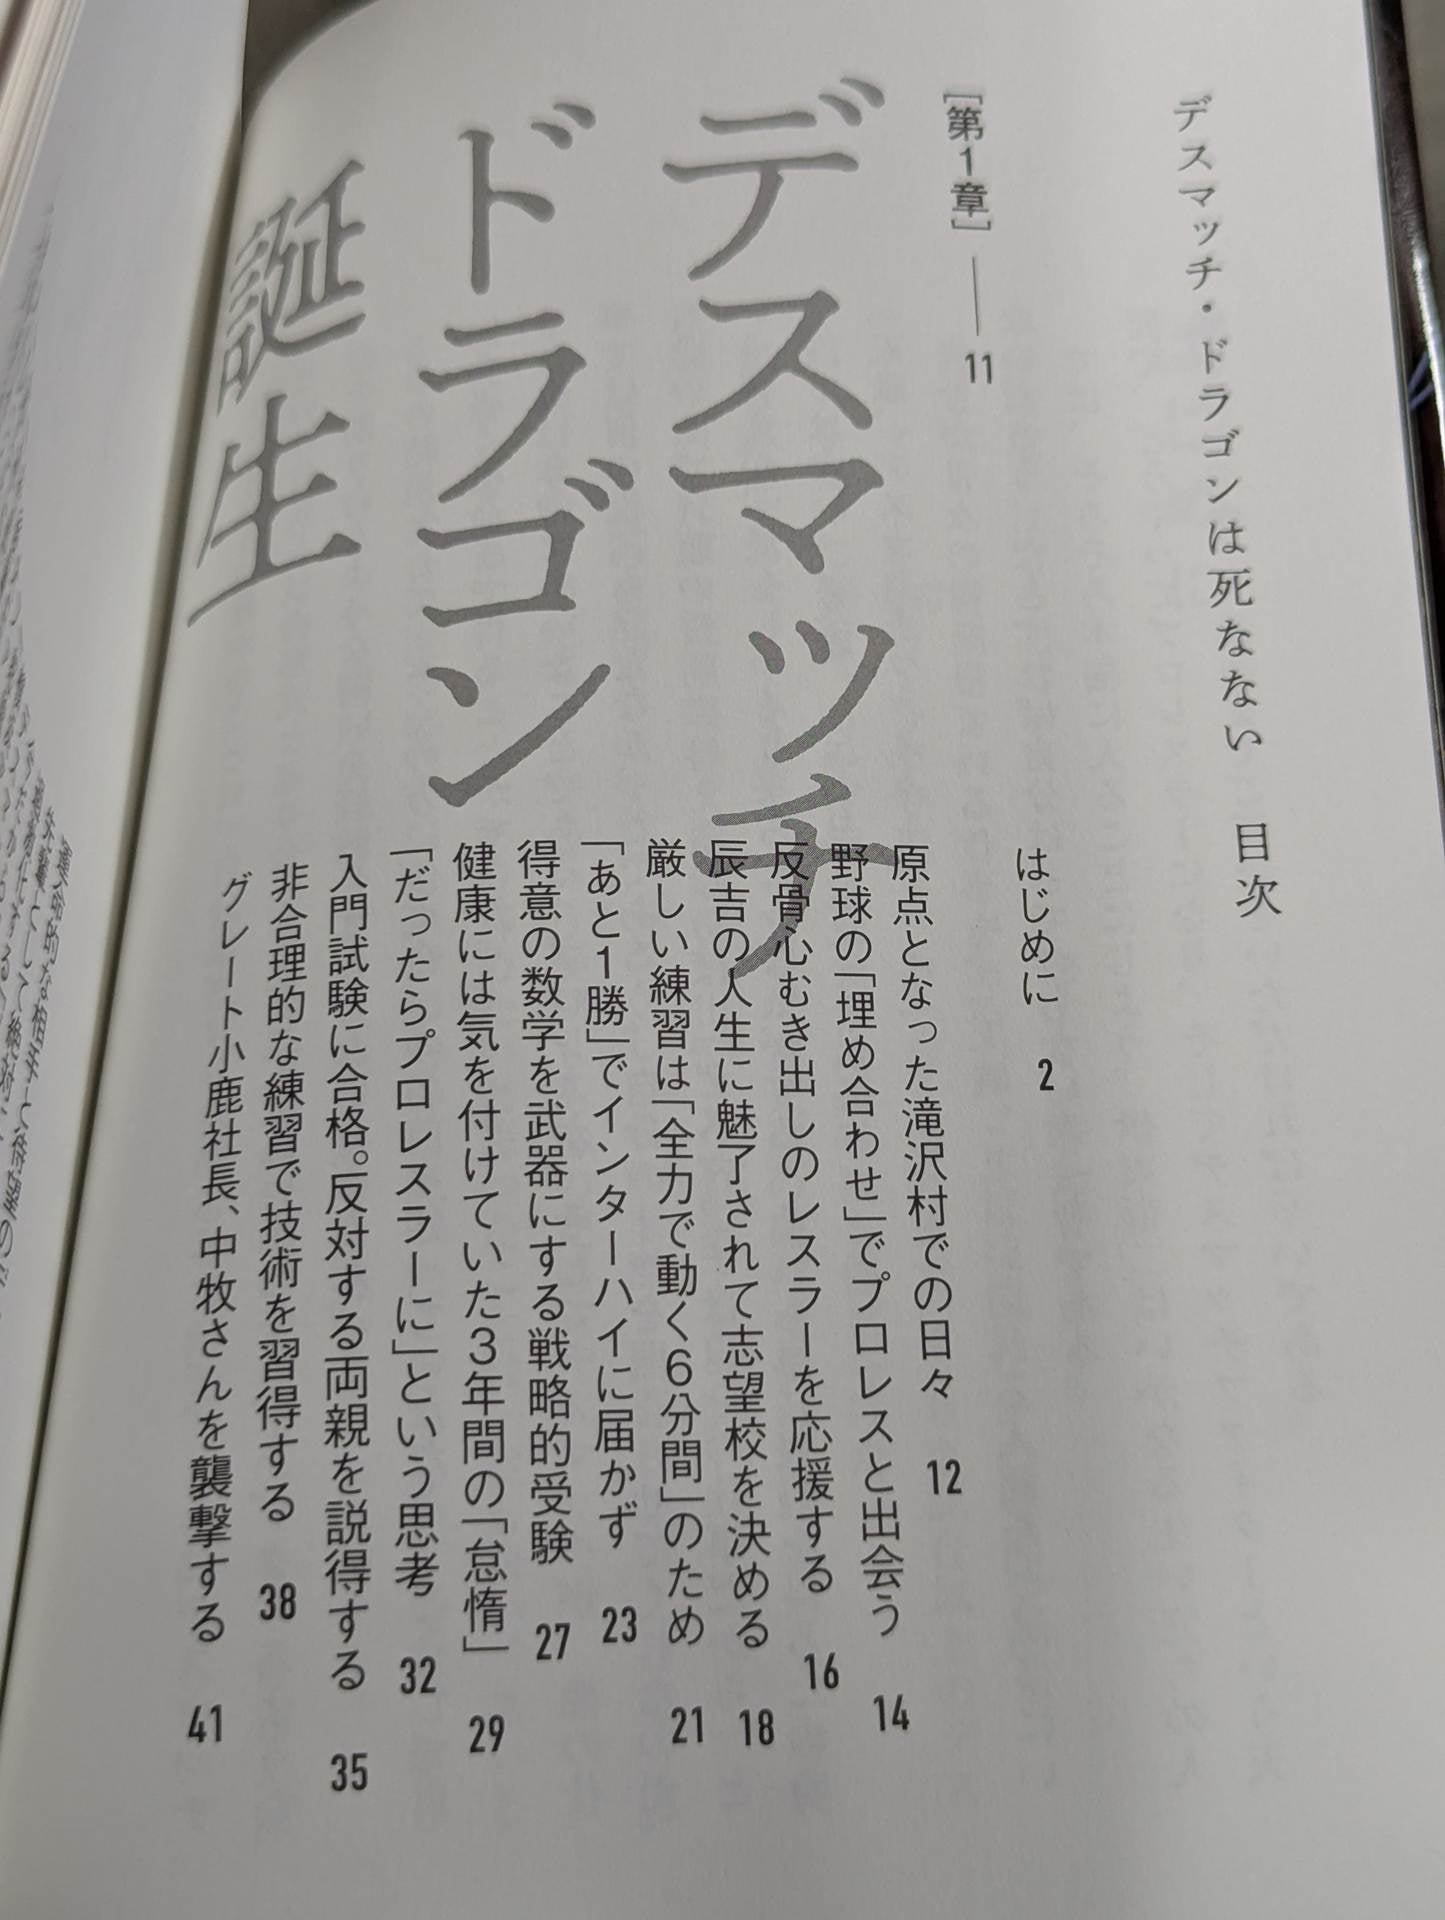 デスマッチ・ドラゴンは死なない 目次
はじめに 2
[第1章]――11
デスマッチ
ドラゴン
誕生
原点となった滝沢村での日々 12
野球の「埋め合わせ」でプロレスと出会う 14
反骨心むき出しのレスラーを応援する 16
辰吉の人生に魅了されて志望校を決める 18
厳しい練習は「全力で動く6分間」のため 21
「あと1勝」でインターハイに届かず 23
得意の数学を武器にする戦略的受験 27
健康には気を付けていた3年間の「怠惰」 29
「だったらプロレスラーに」という思考 32
入門試験に合格。反対する両親を説得する 35
非合理的な練習で技術を習得する 38
グレート小鹿社長、中牧さんを襲撃する 41